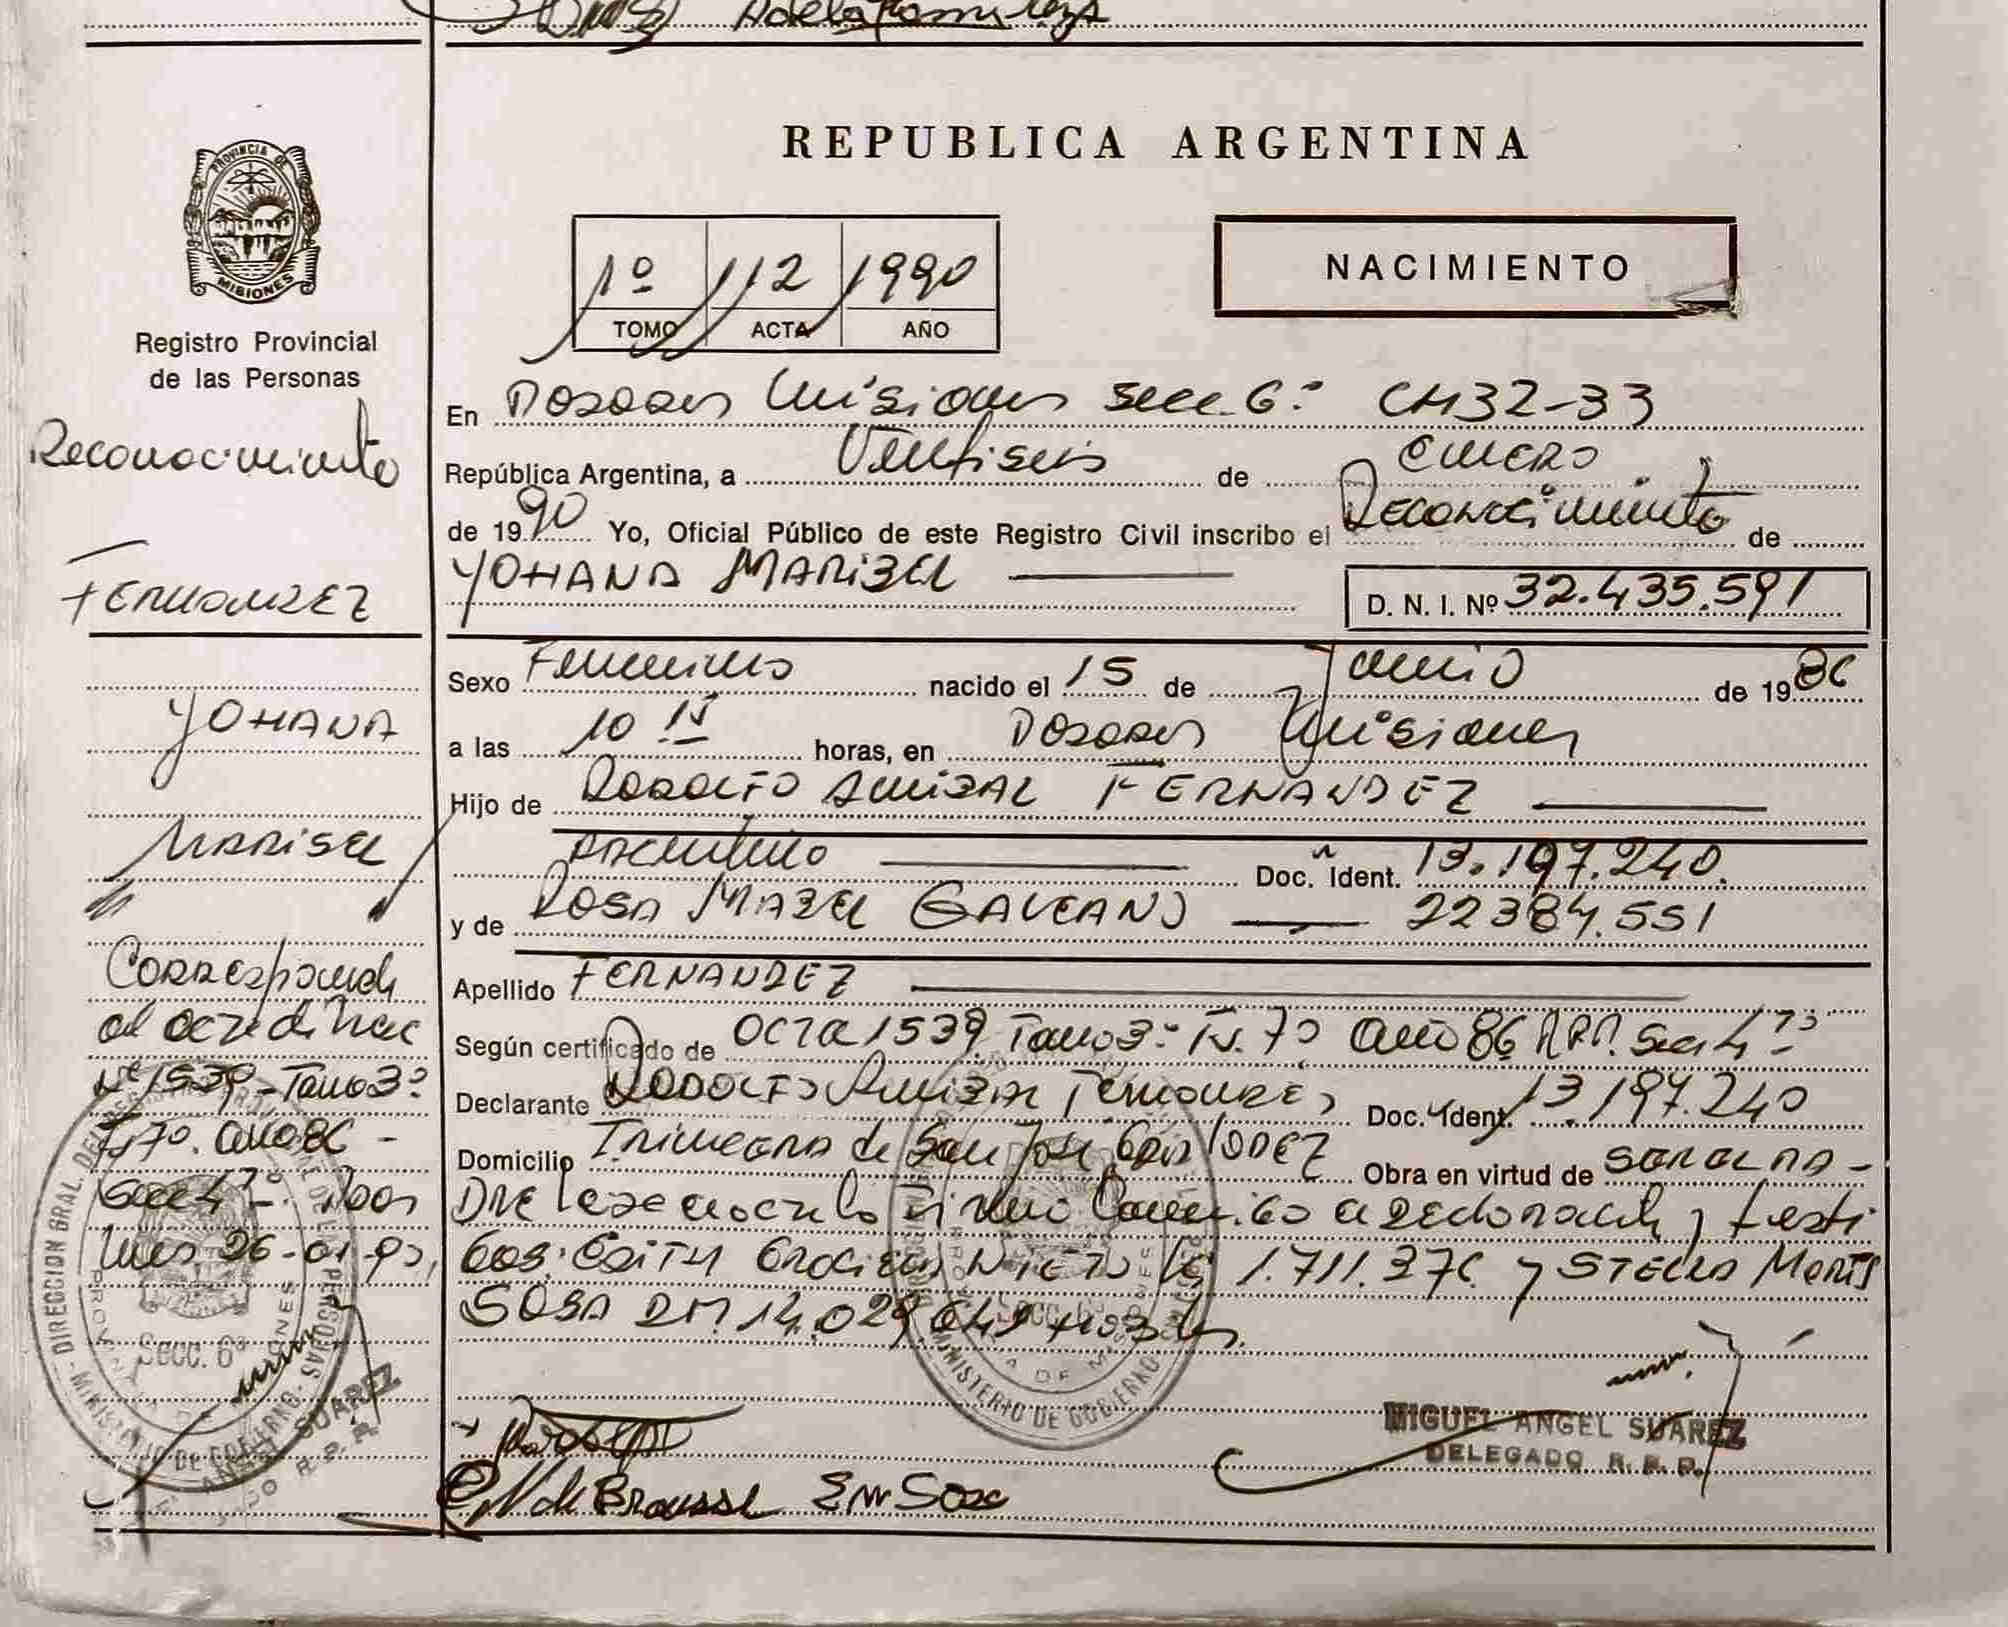 Adela Ramirez
PROVINCIA DE
MISIONES
Registro Provincial
de las Personas
Reconocimiento
FERNANDEZ
YOHANA
MARISEL
Corresponde
al acta de Nac
Nº 1539 - Tomo 3º
Fº 70. año 86 -
Secc 4ª. Posa
26-01-90,
REPUBLICA ARGENTINA
1º 112 1990
TOMO ACTA AÑO
NACIMIENTO
En Posadas Misiones Secc. 6ª CH 32-33
República Argentina, a Veintiseis de Enero
de 1990 Yo, Oficial Público de este Registro Civil inscribo el Reconocimiento de
YOHANA MARISEL D. N. I. Nº 32.435.591
Sexo Femenino nacido el 15 de Junio de 1986
a las 10 15 horas, en Posadas Misiones
Hijo de RODOLFO ANIBAL FERNANDEZ
Argentino Doc. Ident. 13.197.240.
y de ROSA MABEL GALEANO 22384.551
Apellido FERNANDEZ
Según certificado de acta 1539 Tomo 3º Fº 70 año 86 RPP. Secc 4ª
Declarante RODOLFO ANIBAL FERNANDEZ Doc. Ident. 13.197.240
Domicilio de San José Obra en virtud de
y testi
gos: EDITH NIETO 1.711.376 y STELLA MARIS
SOSA DNI. 14.029.649
Secc. 6ª
DIRECCION GRAL. DEL REGISTRO PROVINCIAL DE LAS PERSONAS - MINISTERIO DE GOBIERNO
PROVINCIA DE MISIONES
Secc. 6ª
MINISTERIO DE GOBIERNO
MIGUEL ANGEL SUAREZ
DELEGADO R. P. P.
N de Brousse Sosa